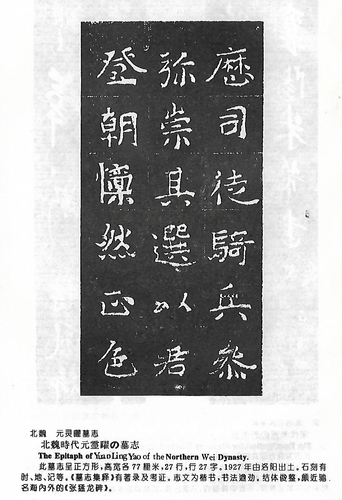 歷司徒騎兵參
弥崇其選以君
登朝懍然正色
北魏 元灵曜墓志
北魏時代元靈曜の墓志
The Epitaph of Yuan Ling Yao of the Northern Wei Dynasty.
此墓志呈正方形,高宽各 77 厘米,27 行,行 27 字。1927 年由洛阳出土。石刻有
时、地、记等。《墓志集释》有著录及考证。志文为楷书,书法遒劲,结体俊整,颇近驰
名海内外的《张猛龙碑》。